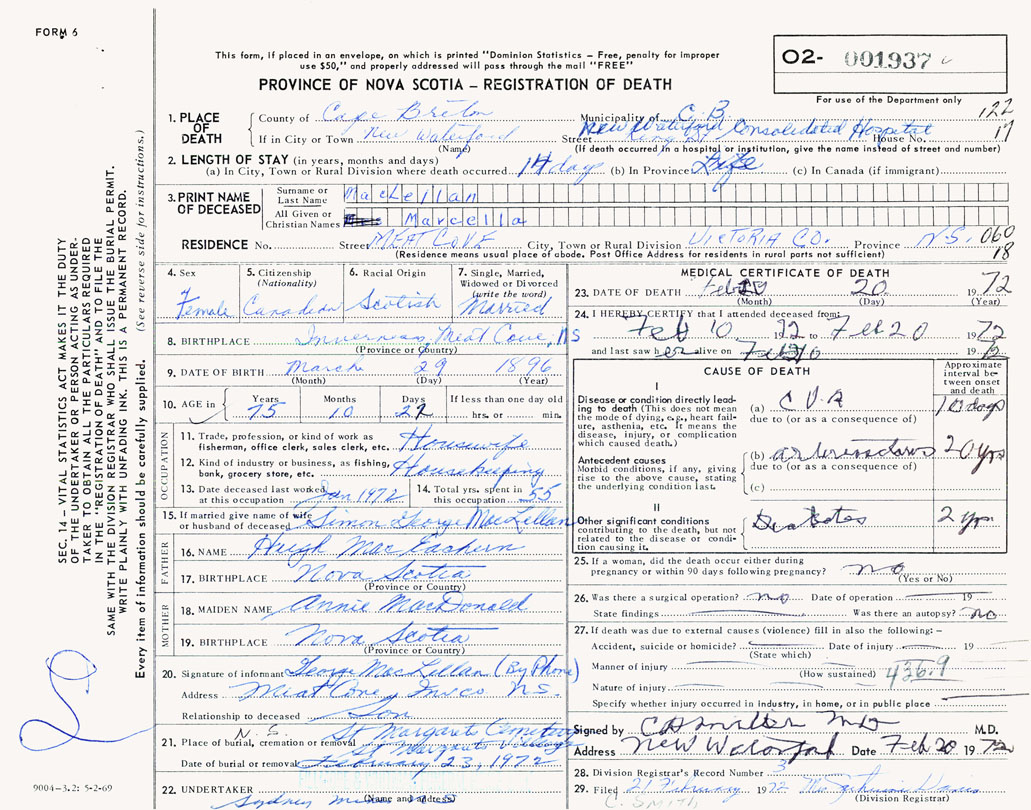 FORM 6
This form, if placed in an envelope, on which is printed "Dominion Statistics – Free, penalty for improper
use $50," and properly addressed will pass through the mail "FREE"
PROVINCE OF NOVA SCOTIA – REGISTRATION OF DEATH
O2- 001937
For use of the Department only
122
17
1. PLACE OF DEATH
County of Cape Breton Municipality of C. B
If in City or Town New Waterford Street New Waterford Consolidated Hospital House No.
(Name) (If death occurred in a hospital or institution, give the name instead of street and number)
2. LENGTH OF STAY (in years, months and days)
(a) In City, Town or Rural Division where death occurred 14 days (b) In Province Life (c) In Canada (if immigrant)
3. PRINT NAME OF DECEASED
Surname or Last Name MacLellan
All Given or Christian Names Marcella
RESIDENCE No. Street MEAT COVE City, Town or Rural Division VICTORIA CO. Province N.S. 060
18
(Residence means usual place of abode. Post Office Address for residents in rural parts not sufficient)
4. Sex
Female
5. Citizenship
(Nationality)
Canadian
6. Racial Origin
Scotish
7. Single, Married,
Widowed or Divorced
(write the word)
Married
8. BIRTHPLACE Inverness, Meat Cove, NS
(Province or Country)
9. DATE OF BIRTH March 29 1896
(Month) (Day) (Year)
10. AGE in
Years Months Days If less than one day old
75 10 22 hrs. or min.
OCCUPATION
11. Trade, profession, or kind of work as
fisherman, office clerk, sales clerk, etc. Housewife
12. Kind of industry or business, as fishing,
bank, grocery store, etc. Housekeeping
13. Date deceased last worked
at this occupation Jan 1972
14. Total yrs. spent in
this occupation 55
15. If married give name of wife
or husband of deceased Simon George MacLellan
FATHER
16. NAME Hugh MacEachern
17. BIRTHPLACE Nova Scotia
(Province or Country)
MOTHER
18. MAIDEN NAME Annie MacDonald
19. BIRTHPLACE Nova Scotia
(Province or Country)
20. Signature of informant George MacLellan (By Phone)
Address Meat Cove, Inv Co N.S.
Relationship to deceased Son
N. S. St Margarets Cemetery
21. Place of burial, cremation or removal Margaret Village
Date of burial or removal February 23, 1972
22. UNDERTAKER
(Name and address)
Sydney
MEDICAL CERTIFICATE OF DEATH
23. DATE OF DEATH Feb 20 1972
(Month) (Day) (Year)
24. I HEREBY CERTIFY that I attended deceased from:
Feb 10 1972 to Feb 20 1972
and last saw her alive on Feb 19
CAUSE OF DEATH
Approximate interval between onset and death
I
Disease or condition directly leading to death (This does not mean the mode of dying, e.g., heart failure, asthenia, etc. It means the disease, injury, or complication which caused death.)
(a) CVA 10 days
due to (or as a consequence of)
Antecedent causes
Morbid conditions, if any, giving rise to the above cause, stating the underlying condition last.
(b) arteriosclerosis 20 yrs
due to (or as a consequence of)
(c)
II
Other significant conditions contributing to the death, but not related to the disease or condition causing it.
Diabetes 2 yrs
25. If a woman, did the death occur either during
pregnancy or within 90 days following pregnancy? no
(Yes or No)
26. Was there a surgical operation? no Date of operation 19
State findings Was there an autopsy? no
27. If death was due to external causes (violence) fill in also the following: –
Accident, suicide or homicide? Date of injury 19
(State which)
Manner of injury
(How sustained) 436.9
Nature of injury
Specify whether injury occurred in industry, in home, or in public place
Signed by M.D.
Address New Waterford Date Feb 20 1972
28. Division Registrar's Record Number 3
29. Filed 21 February 1972
(Division Registrar)
C. SMITH
SEC. 14 – VITAL STATISTICS ACT MAKES IT THE DUTY
OF THE UNDERTAKER OR PERSON ACTING AS UNDER-
TAKER TO OBTAIN ALL THE PARTICULARS REQUIRED
IN THE "REGISTRATION OF DEATH" AND TO FILE THE
SAME WITH THE DIVISION REGISTRAR WHO SHALL ISSUE THE BURIAL PERMIT.
WRITE PLAINLY WITH UNFADING INK. THIS IS A PERMANENT RECORD.
Every item of information should be carefully supplied. (See reverse side for instructions.)
9004–3.2: 5-2-69